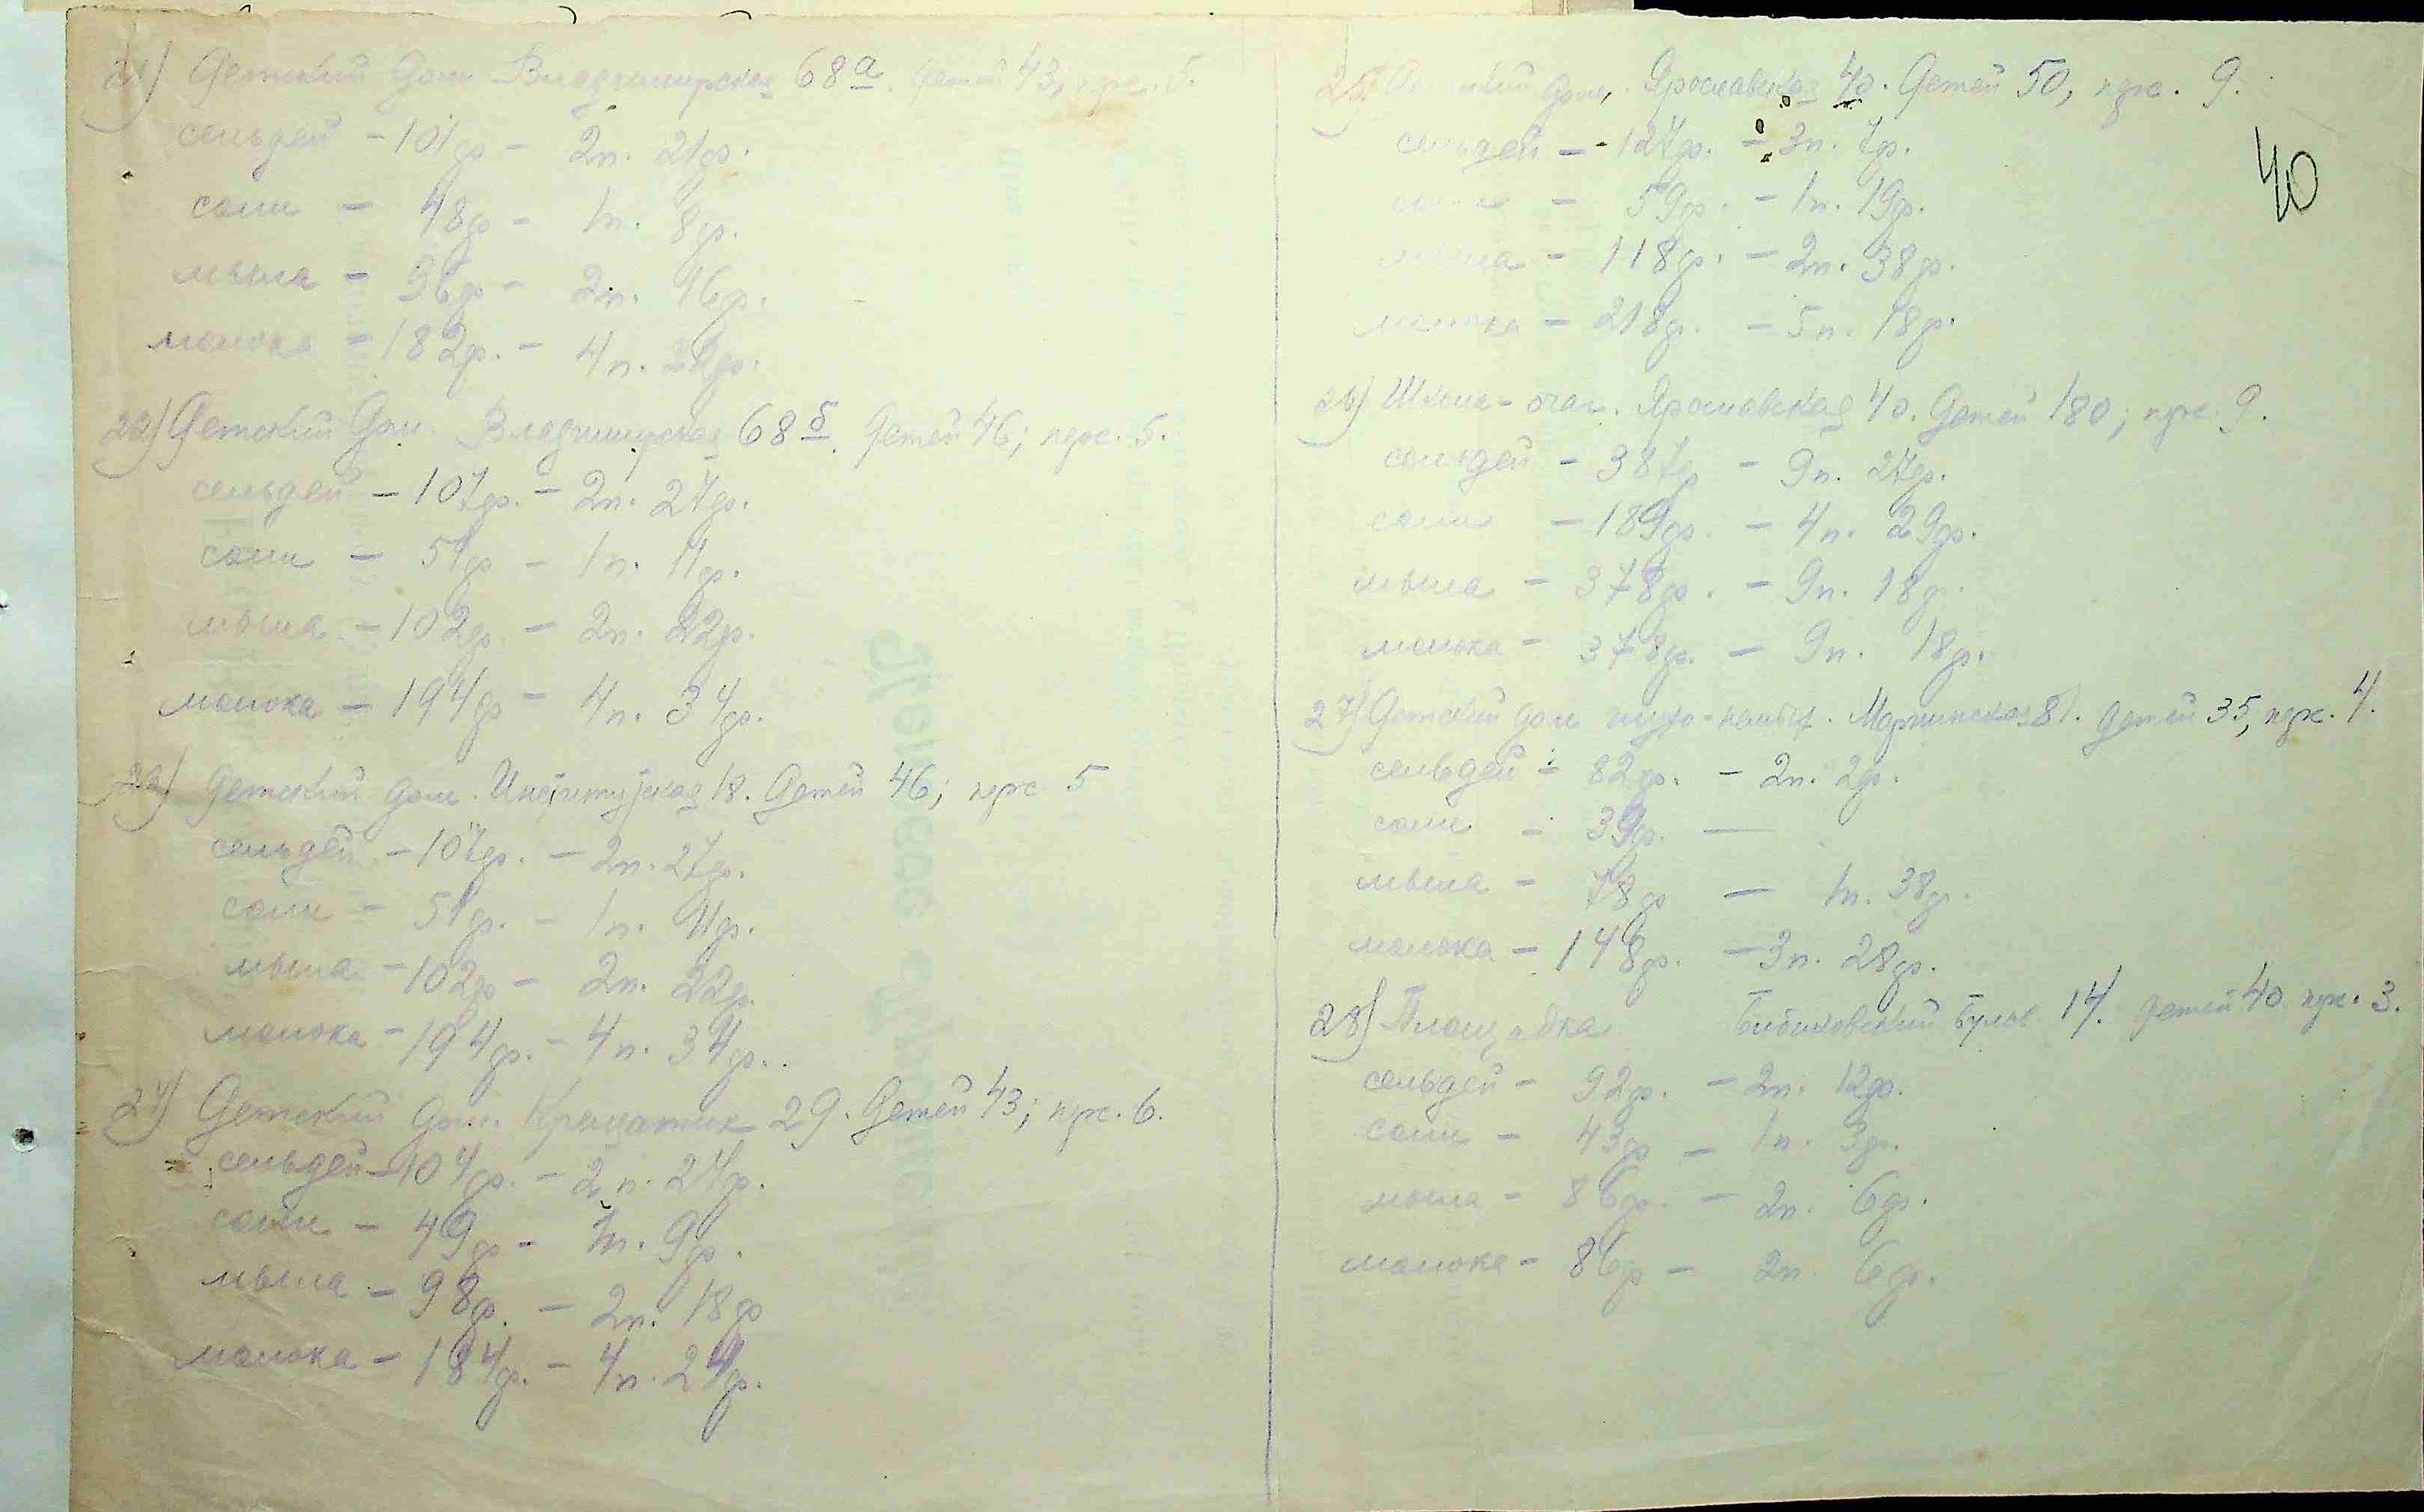 21) Детский дом Владимирская 68а. Детей 43, прс. 5.
сельдей - 101ф - 2п. 21ф.
соли - 48ф - 1п. 8ф.
мыла - 96ф - 2п. 16ф.
молока - 182ф. - 4п. 22ф.
22) Детский Дом. Владимирская 68б. Детей 46; прс. 5.
сельдей - 107ф. - 2п. 27ф.
соли - 51ф - 1п. 11ф.
мыла - 102ф. - 2п. 22ф.
молока - 194ф - 4п. 34ф.
23) Детский дом. Институтская 18. Детей 46; прс 5
сельдей - 107ф. - 2п. 27ф.
соли - 51ф. - 1п. 11ф.
мыла - 102ф - 2п. 22ф.
молока - 194ф. - 4п. 34ф.
24) Детский дом. Крещатик 29. Детей 43; прс. 6.
сельдей - 104ф. - 2п. 24ф.
соли - 49ф - 1п. 9ф.
мыла - 98ф. - 2п. 18ф
молока - 184ф. - 4п. 24ф.
40
25) Детский дом. Ярославская 40. Детей 50, прс. 9.
сельдей - 127ф. - 3п. 7ф.
соли - 59ф. - 1п. 19ф.
мыла - 118ф. - 2п. 38ф.
молока - 218ф. - 5п. 18ф.
26) Школа-очаг. Ярославская 40. Детей 180; прс. 9.
сельдей - 387ф - 9п. 27ф.
соли - 189ф. - 4п. 29ф.
мыла - 378ф. - 9п. 18ф.
молока - 378ф. - 9п. 18ф.
27) Детский дом глухо-немых. Мариинская 81. Детей 35, прс. 4.
сельдей - 82ф. - 2п. 2ф.
соли - 39ф. -
мыла - 78ф - 1п. 38ф.
молока - 148ф. - 3п. 28ф.
28) Площадка Бибиковский Бульв 14. детей 40 прс. 3.
сельдей - 92ф. - 2п. 12ф.
соли - 43ф - 1п. 3ф.
мыла - 86ф. - 2п. 6ф.
молока - 86ф - 2п 6ф.